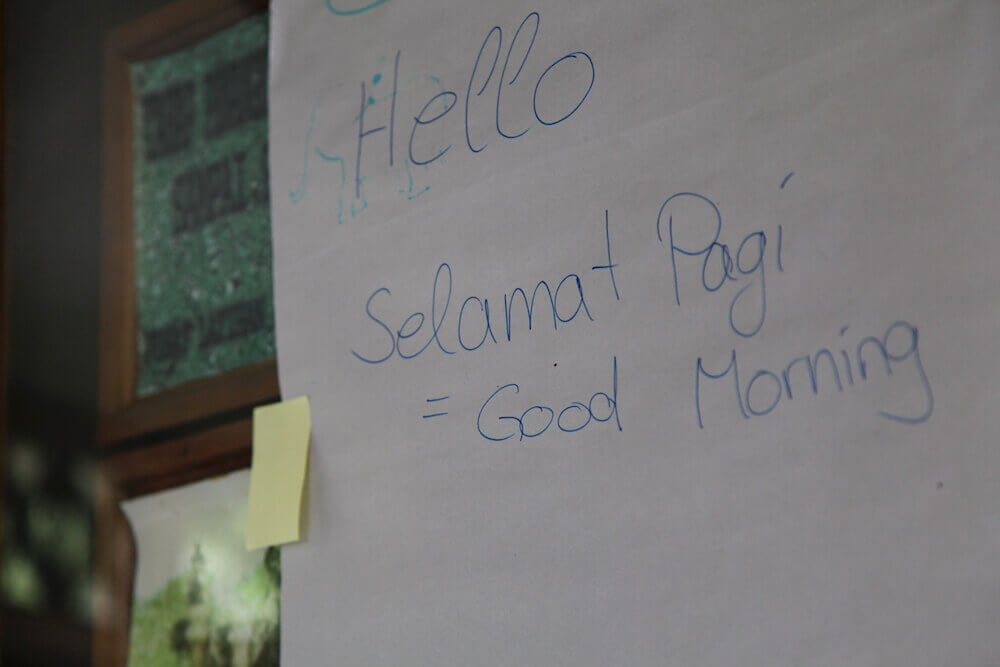 Hello
Selamat Pagi
= Good Morning